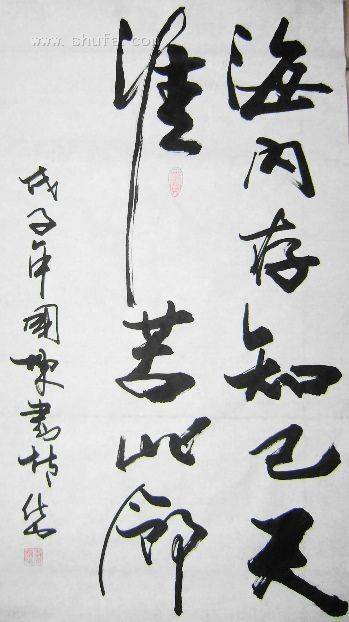 www.shufa.com
海内存知己天
涯若比邻
戊子年國棟書